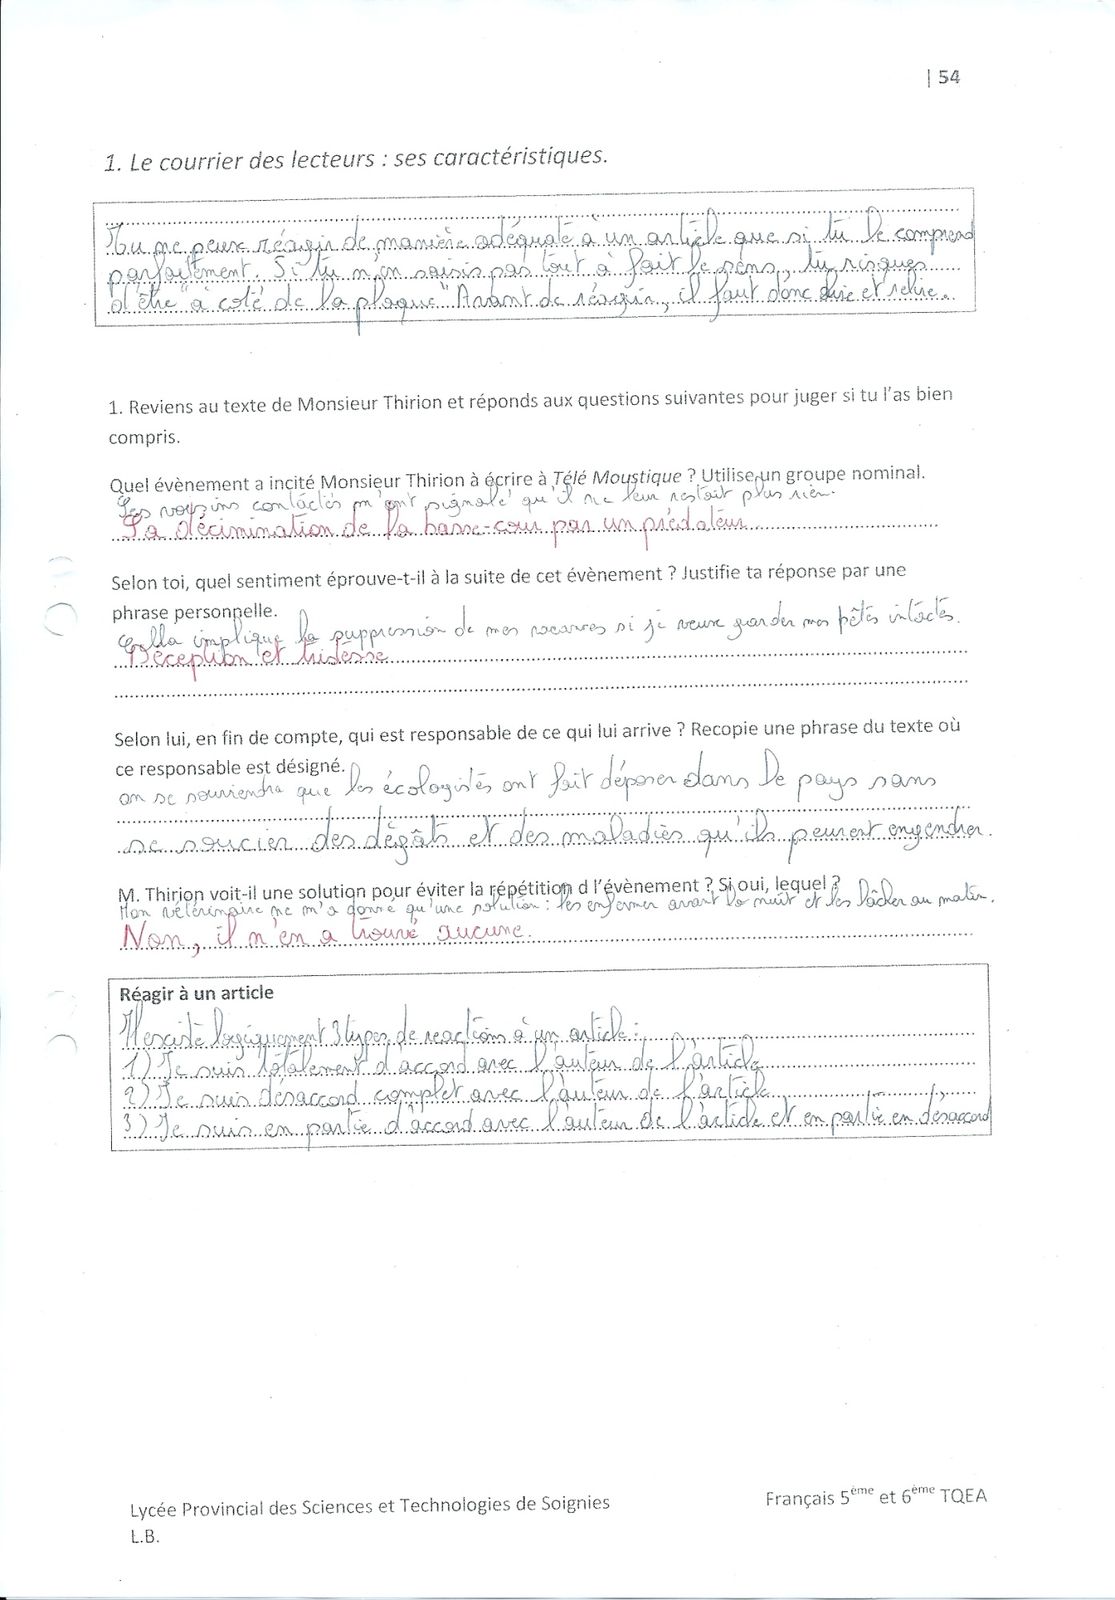 | 54
1. Le courrier des lecteurs : ses caractéristiques.
Tu ne peux réagir de manière adéquate à un article que si tu le comprend
parfaitement. Si tu n'en saisis pas tout à fait le sens, tu risques
d'être "à coté de la plaque" Avant de réagir, il faut donc lire et relire.
1. Reviens au texte de Monsieur Thirion et réponds aux questions suivantes pour juger si tu l'as bien
compris.
Quel évènement a incité Monsieur Thirion à écrire à Télé Moustique ? Utilise un groupe nominal.
Les voisins contactés m'ont signalé qu'il ne leur restait plus rien.
La décimination de la basse-cour par un prédateur
Selon toi, quel sentiment éprouve-t-il à la suite de cet évènement ? Justifie ta réponse par une
phrase personnelle.
implique la suppression de mes vacances si je veux garder mes bêtes intactes.
Déception et tristesse
Selon lui, en fin de compte, qui est responsable de ce qui lui arrive ? Recopie une phrase du texte où
ce responsable est désigné.
on se souviendra que les écologistes ont fait déposer dans le pays sans
se soucier des dégâts et des maladies qu'ils peuvent engendrer.
M. Thirion voit-il une solution pour éviter la répétition d l'évènement ? Si oui, lequel ?
Mon vétérinaire ne m'a donné qu'une solution : les enfermer avant la nuit et les lâcher au matin.
Non, il n'en a trouvé aucune.
Réagir à un article
Il existe logiquement 3 types de reactions à un article :
1) Je suis totalement d'accord avec l'auteur de l'article
2) Je suis désaccord complet avec l'auteur de l'article
3) Je suis en partie d'accord avec l'auteur de l'article et en partie en désaccord
Lycée Provincial des Sciences et Technologies de Soignies
Français 5ème et 6ème TQEA
L.B.